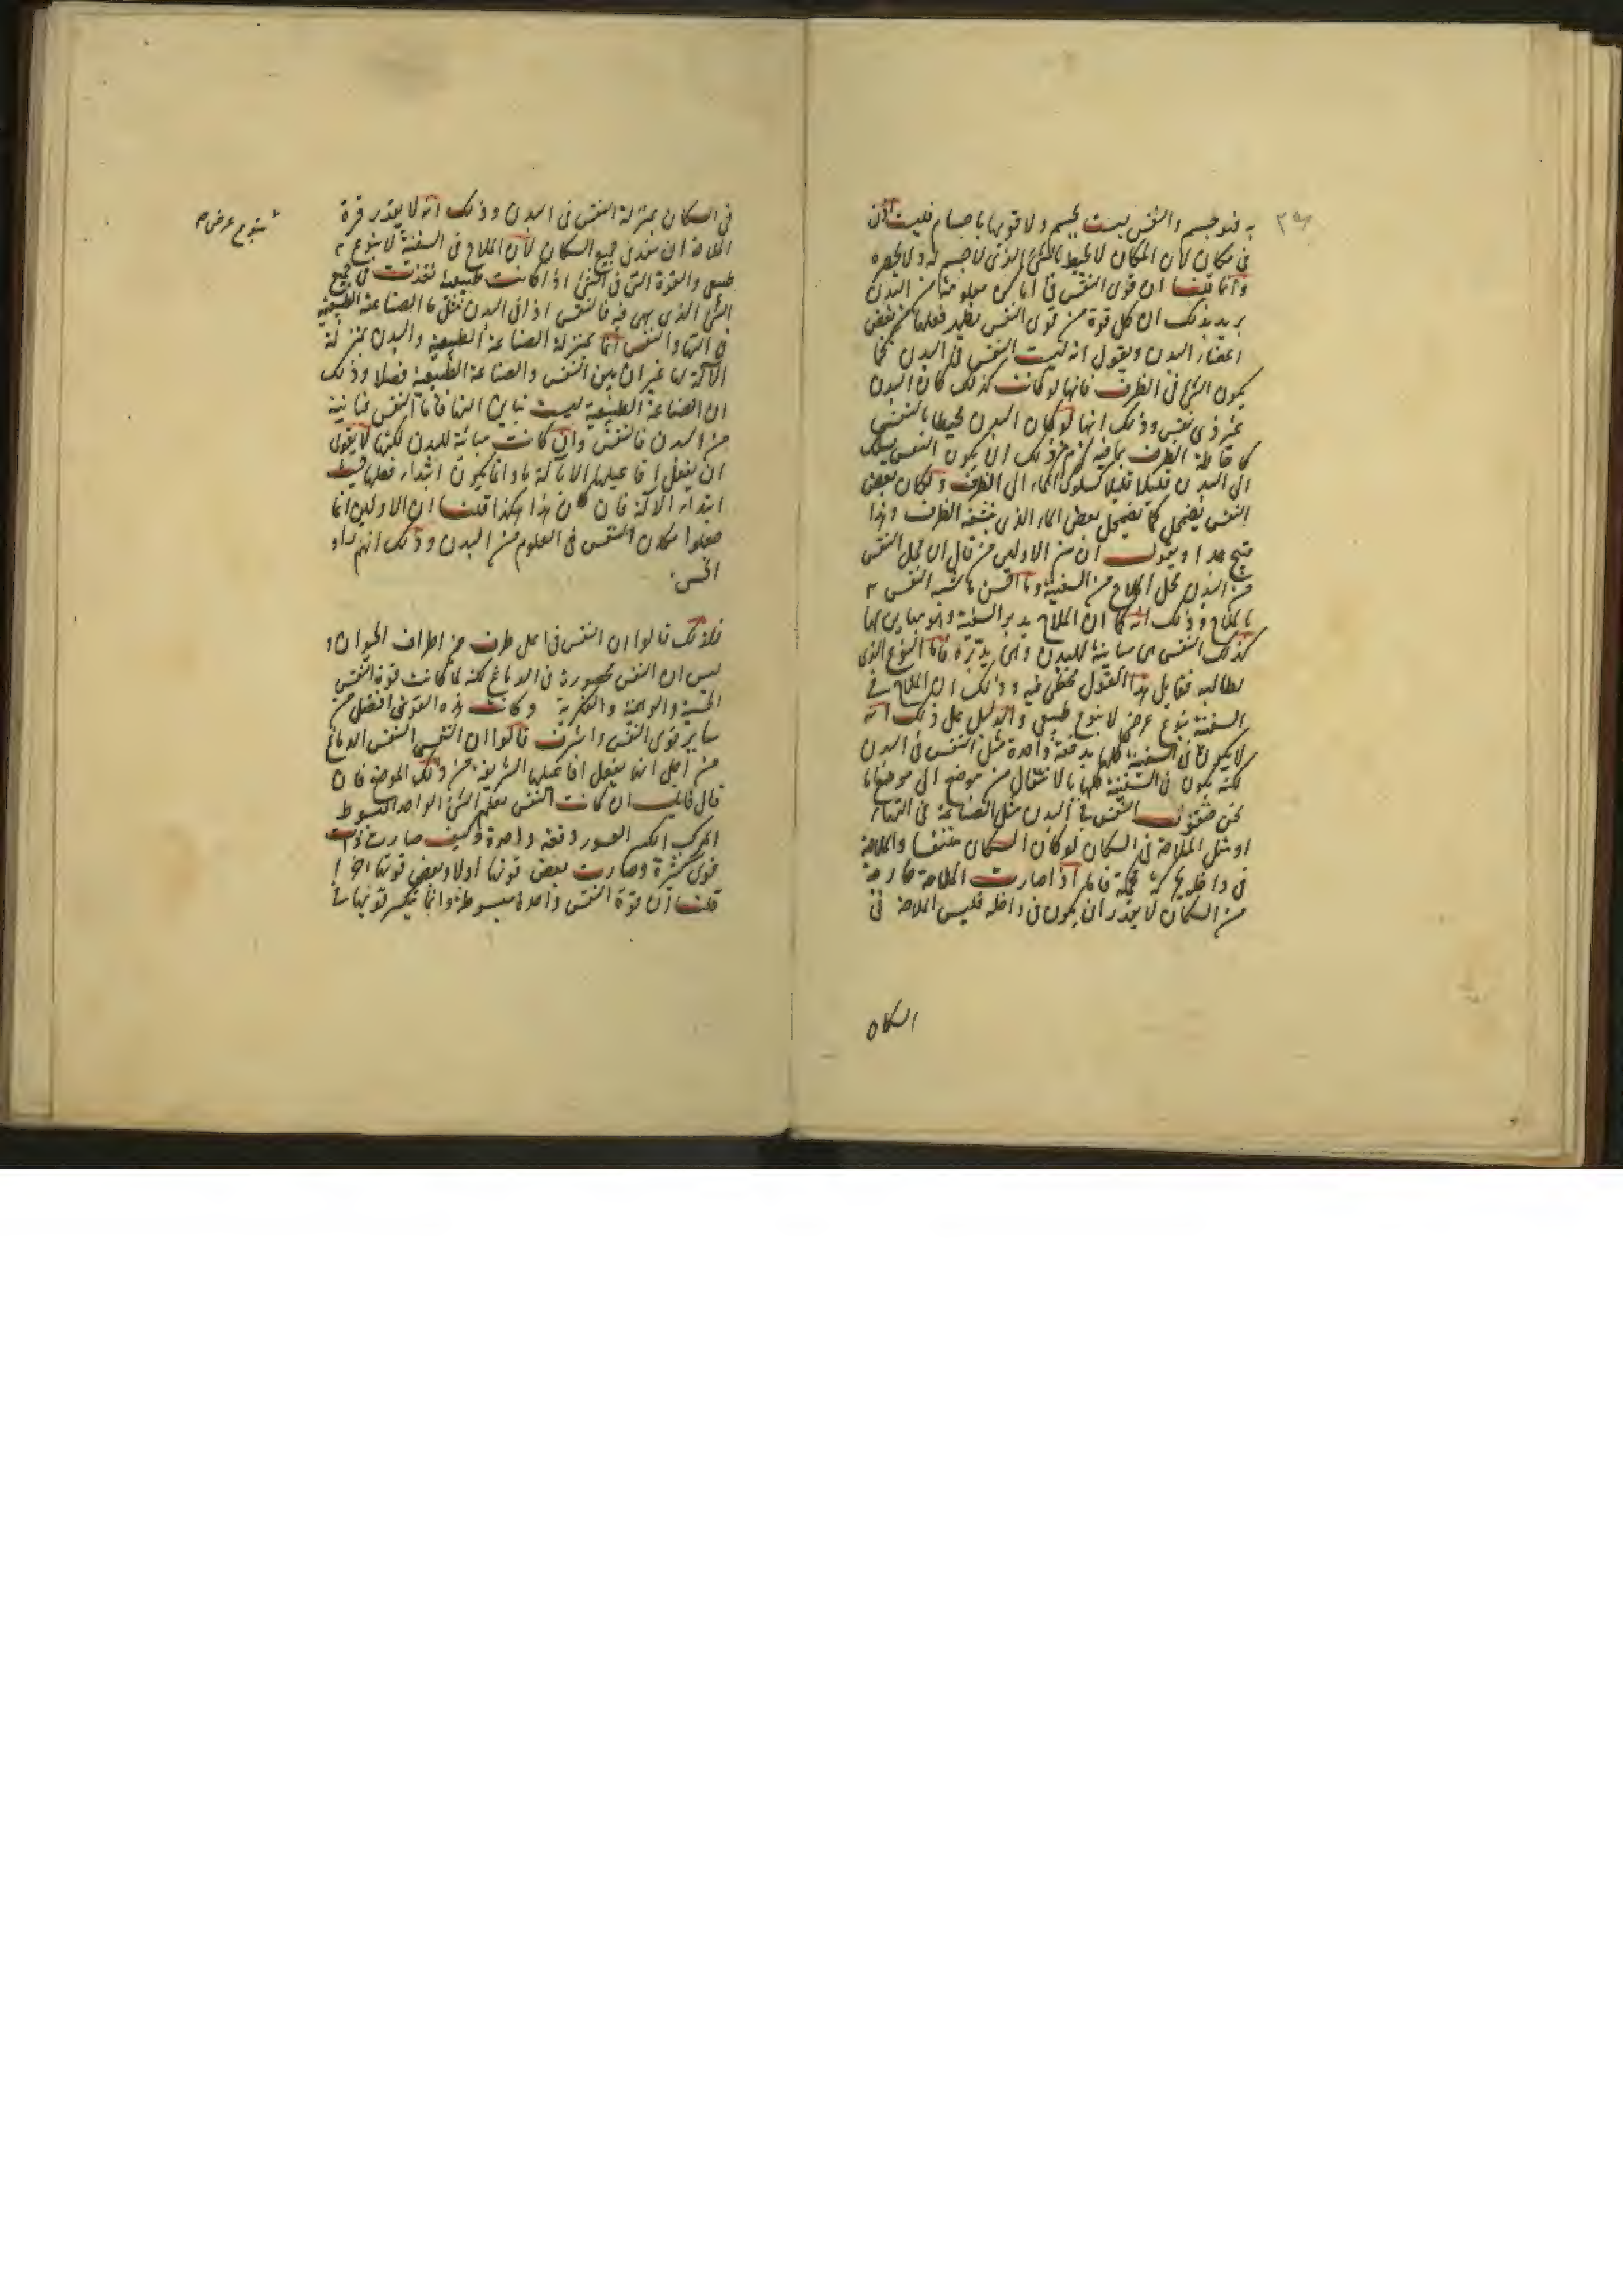 به فهو جسم والنفس ليست بجسم ولا قويها باجسام فليست اذن
في مكان لان المكان لا يحيط بالشئ الذى لا جسم له ولا يحصره
وانما قلنا ان قوى النفس في اماكن معلومة من البدن
يريد بذلك ان كل قوة من قوى النفس يظهر فعلها من بعض
اعضاء البدن ويقول انه ليست النفس في البدن كما
يكون الشئ في الظرف فانها لو كانت كذلك كان البدن
غير ذى نفس وذلك انها لو كان البدن محيطا بالنفس
كاحاطة الظرف بما فيه لزم من ذلك ان يكون النفس يسلك
الى البدن قليلا قليلا كسلوك الماء الى الظرف ولكان بعض
النفس يضمحل كما يضمحل بعض الماء الذى ينشفه الظرف وهذا
قبيح جدا ويقول ان من الاولين من قال ان محل النفس
من البدن محل الملاح من السفينة وما احسن ما شبه النفس
بالملاح وذلك انه كما ان الملاح يدبر السفينة وهو مباين لها
كذلك النفس هي مباينة للبدن وهى يدبره فاما النوع الذى
يطالبه فقايل هذا القول مخطئ فيه وذلك ان الملاح في
السفينة بنوع عرض لا بنوع طبيعى والدليل على ذلك انه
لا يكون في السفينة كلها بدفعة واحدة مثل النفس في البدن
لكنه يكون في السفينة كلها بالانتقال من موضع الى موضع فاما
نحن فنقول النفس في البدن مثل الصناعة في التماثيل
او مثل الملاحة في السكان لو كان السكان متنفسا والملاحة
في داخله يحركه محكمة فاما اذا صارت الملاحة خارجة
من السكان لا يقدر ان يكون في داخله فليس الملاحة في
السكان
في السكان بمنزلة النفس في البدن وذلك انه لا يقدر قوة
الملاحة ان ينفذ في جميع السكان لان الملاح في السفينة لا بنوع
بنوع عرض م
طبيعى والقوة التى في الشئ اذا كانت طبيعية نفذت في جميع
الشئ الذى هى فيه فالنفس اذا في البدن مثل ما الصناعة الطبيعية
في النار والنفس انما بمنزلة الصناعة الطبيعية والبدن بمنزلة
الآلة لها غير ان بين النفس والصناعة الطبيعية فصلا وذلك
ان الصناعة الطبيعية ليست تباين النار فاما النفس فباينة
من البدن فالنفس وان كانت مباينة للبدن لكنها لا يقوى
ان يفعل افاعيلها الا بآلة ما وانما يكون ابتداء فعلها حيث
ابتداء الآلة فان كان هذا هكذا قلنا ان الاولين انما
جعلوا مكان النفس في العلو من البدن وذلك انهم راو
الحس
فلذلك قالوا ان النفس في اعلى طرف من اطراف الحيوان و
ليس ان النفس محصورة في الدماغ لكنه لما كانت قوة النفس
الحسية والوهمية والفكرية وكانت هذه القوى افضل من
ساير قوى النفس واشرف قالوا ان النفس الدماغ
من اجل انها يفعل افاعيلها الشريفة من ذلك الموضع فان
قال قايل ان كانت النفس الشئ الواحد المبسوط
المركب الصور دفعة واحدة وكيف صارت ذات
قوى كثيرة وصارت بعض قوتها اولا وبعض قوتها اخرا
قلنا ان قوة النفس واحدة مبسوطة وانما يتكثر قوتها في